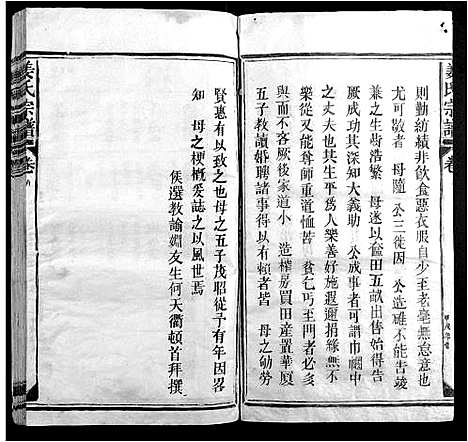 姜氏宗譜
卷
則勤紡績非飲食惡衣服自少至老毫無怠意也
尤可敬者 母隨 公三徙因 公造碓不能告竣
兼之生齒浩繁 母遂以饁田五畝出售始得告
厥成功其深知大義助 公成事者可謂巾幗中
之丈夫也其生平爲人樂善好施遐邇嬴無不
樂從又能尊師重道恤苦 貧乞丐至門者多必
與之不客厥後家道小 造榨房買田產置華厦
五子教讀婚聘諸事得以有賴者皆 母之劬勞
賢惠有以致之也母之五子茂昭從子有年因畧
知 母之梗概爰誌之以風世焉
侯選教諭姻友生何天衢頓首拜撰
姜氏宗譜
卷八